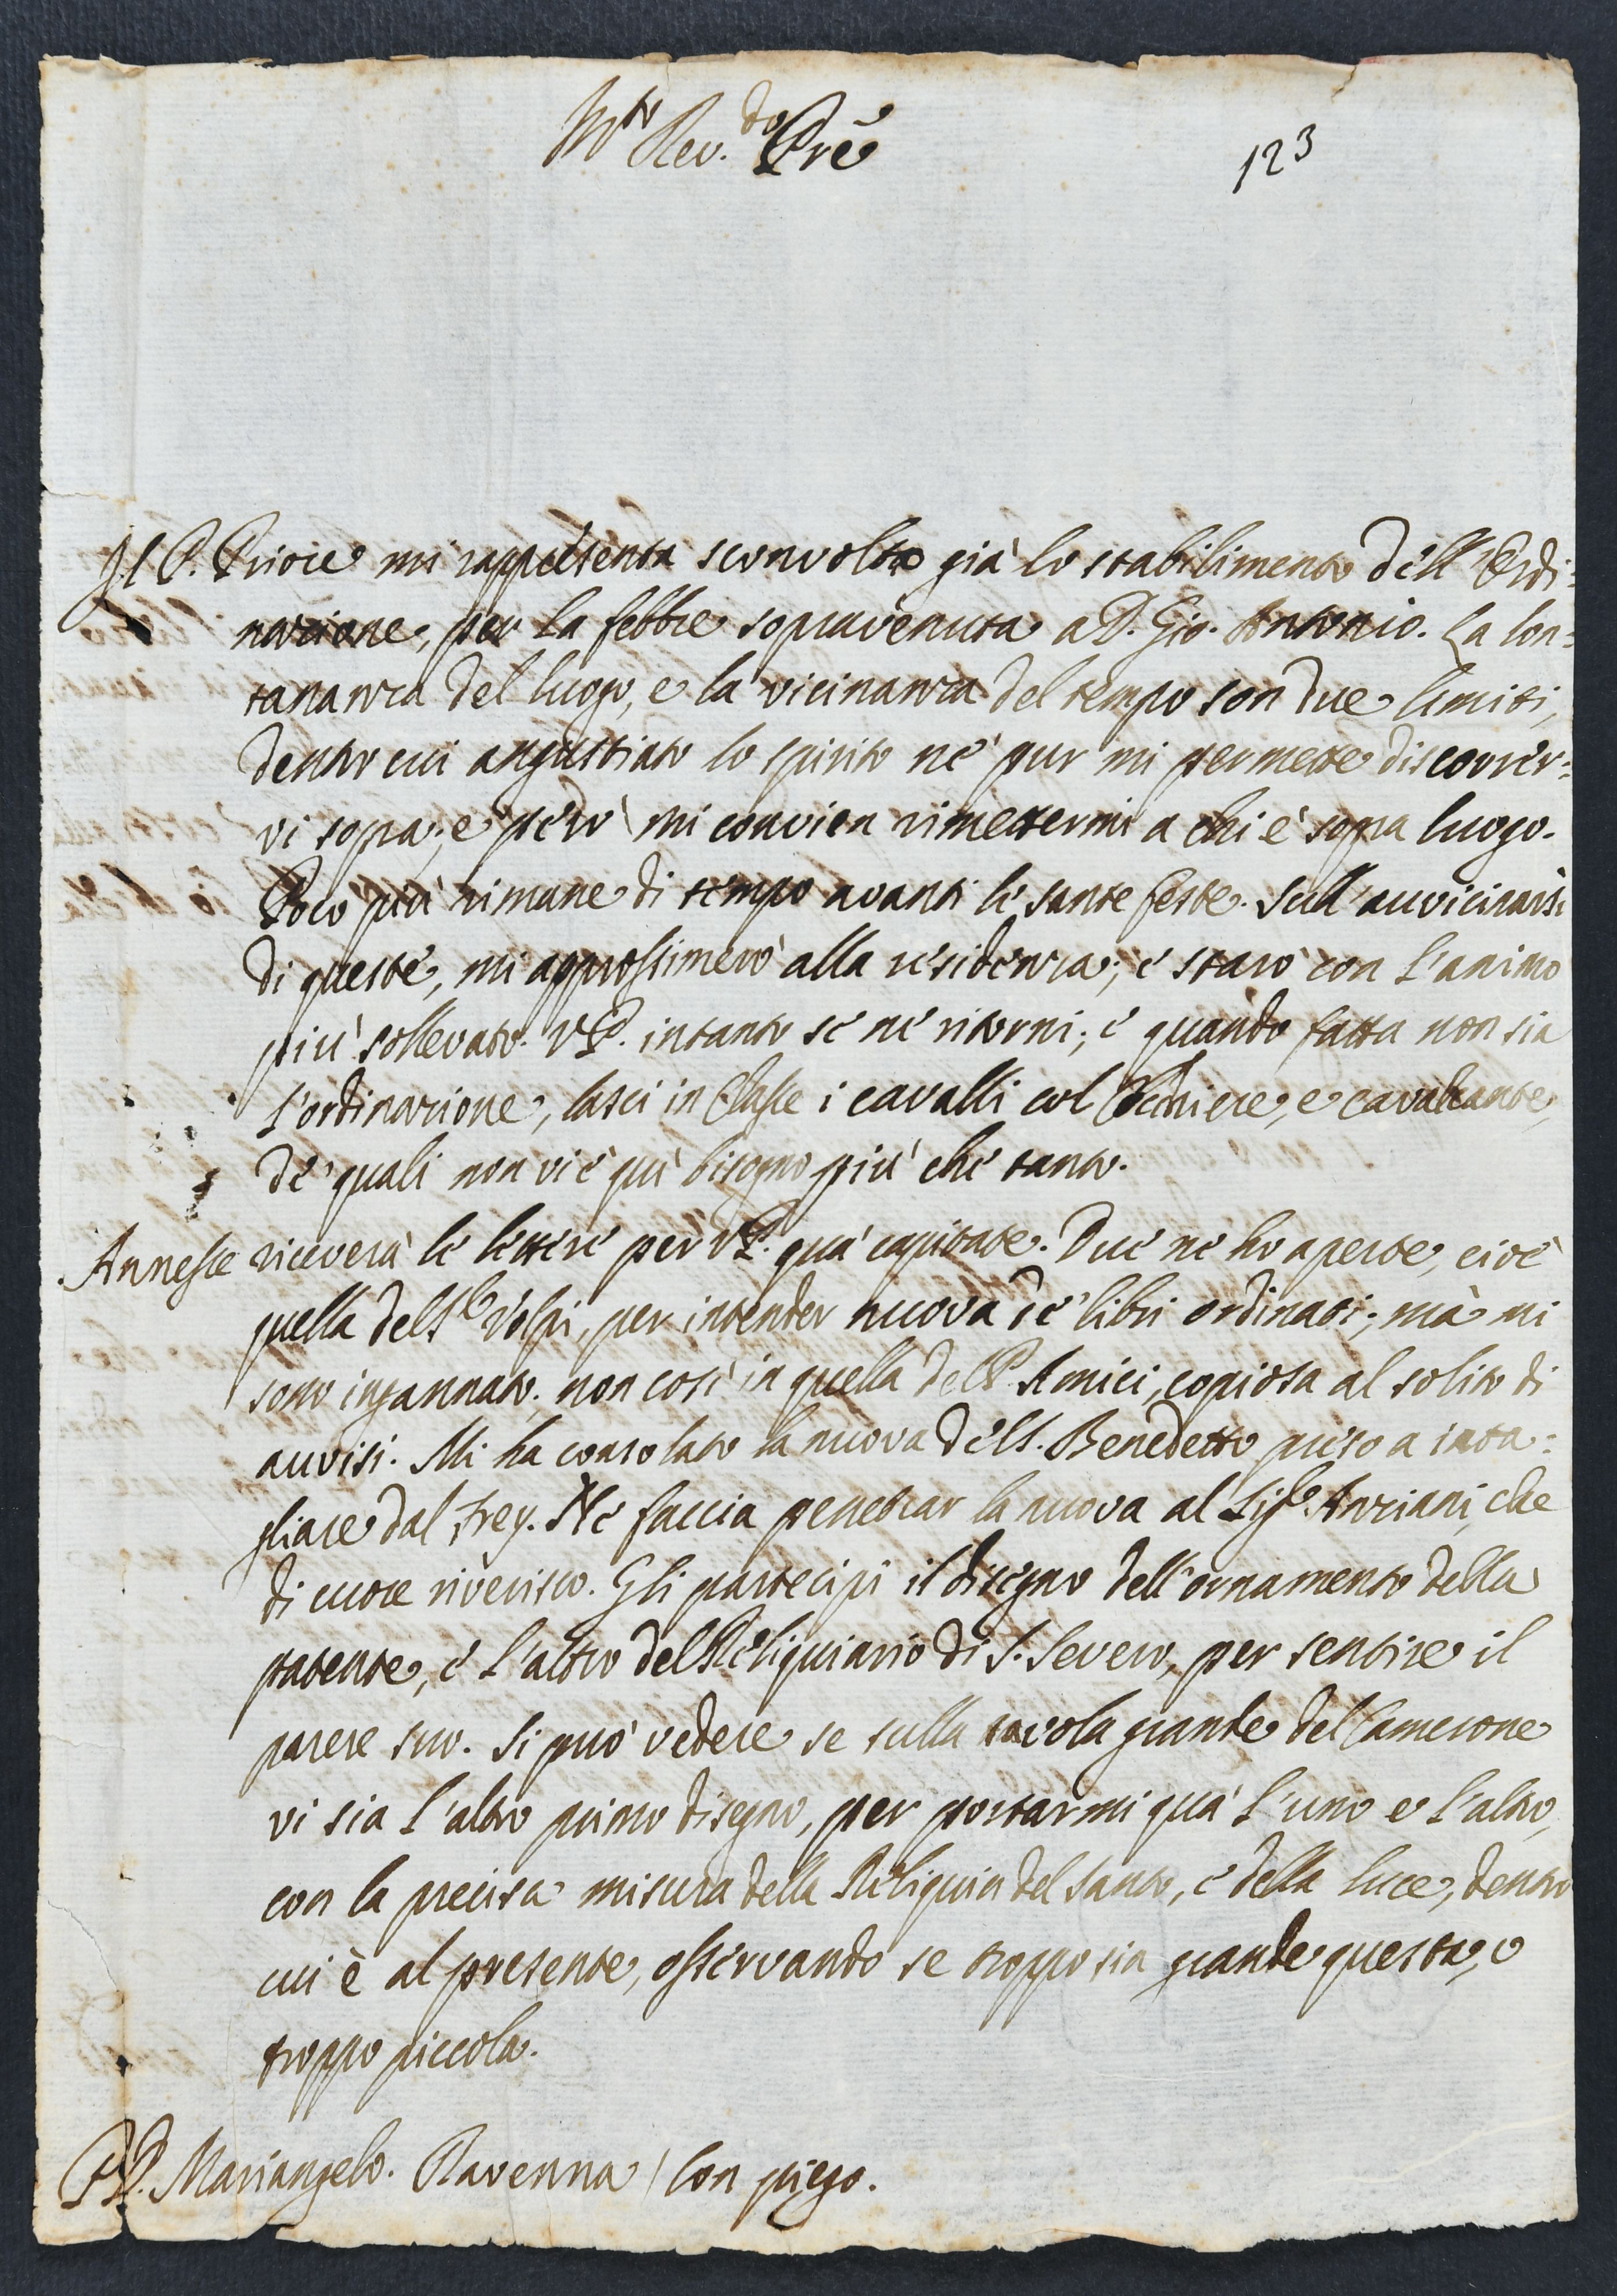 M.to Rev.do Prẽ
123
Il P. Priore mi rappresenta sconvolto già lo stabilimento dell'Ordi=
nazione, per la febbre sopravenuta a D. Gio. Antonio. La lon=
tananza del luogo, e la vicinanza del tempo son due limiti,
dentro cui angustiato lo spirito nè pur mi permette discorrer=
vi sopra; e però mi convien rimettermi a chi è sopra luogo.
Poco più rimane di tempo avanti le sante feste. Sull'auvicinarsi
di queste, mi approssimerò alla residenza; e starò con l'animo
più sollevato. V.P. intanto se ne ritorni; e quando fatta non sia
l'ordinazione, lasci in Classe i cavalli col Cocchiere, e cavalcante,
de' quali non vi è quì bisogno più che tanto.
Annesse riceverà le lettere per V.P. quà capitate. Due ne ho aperte, cioè
quella del S.r Volpi, per intender nuova de' libri ordinati; mà mi
sono ingannato. non così in quella del P. Amici, copiosa al solito di
auvisi. Mi ha consolato la nuova del S. Benedetto preso a inta=
gliare dal Frey. Ne faccia penetrar la nuova al Sig.r Anziani, che
di cuore riverisco. Gli partecipi il disegno dell'ornamento della
patente, e l'altro del Reliquiario di S. Severo, per sentire il
parere suo. Si può vedere se sulla tavola grande del Camerone
vi sia l'altro primo disegno, per portarmi quà l'uno e l'altro,
con la precisa misura della Reliquia del Santo, e della luce, dentro
cui è al presente, osservando se troppo sia grande questa, o
troppo piccola.
P.D. Mariangelo. Ravenna / Con piego.